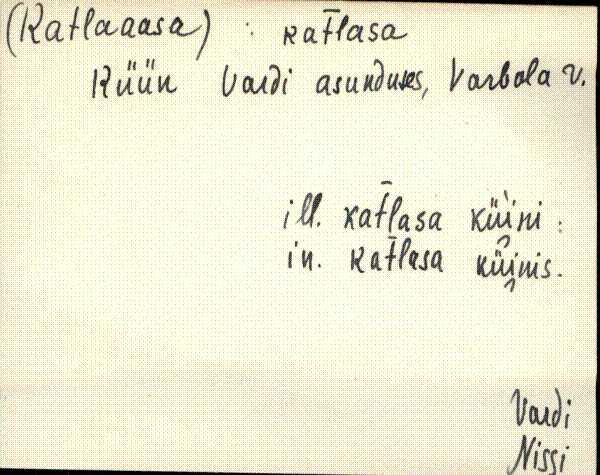 (Katlaaasa) : kat̄lasa
Küün Vardi asunduses, Varbola v.
ill. kat̄lasa küi̯ni :
in. kat̄lasa küi̯nis.
Vardi
Nissi